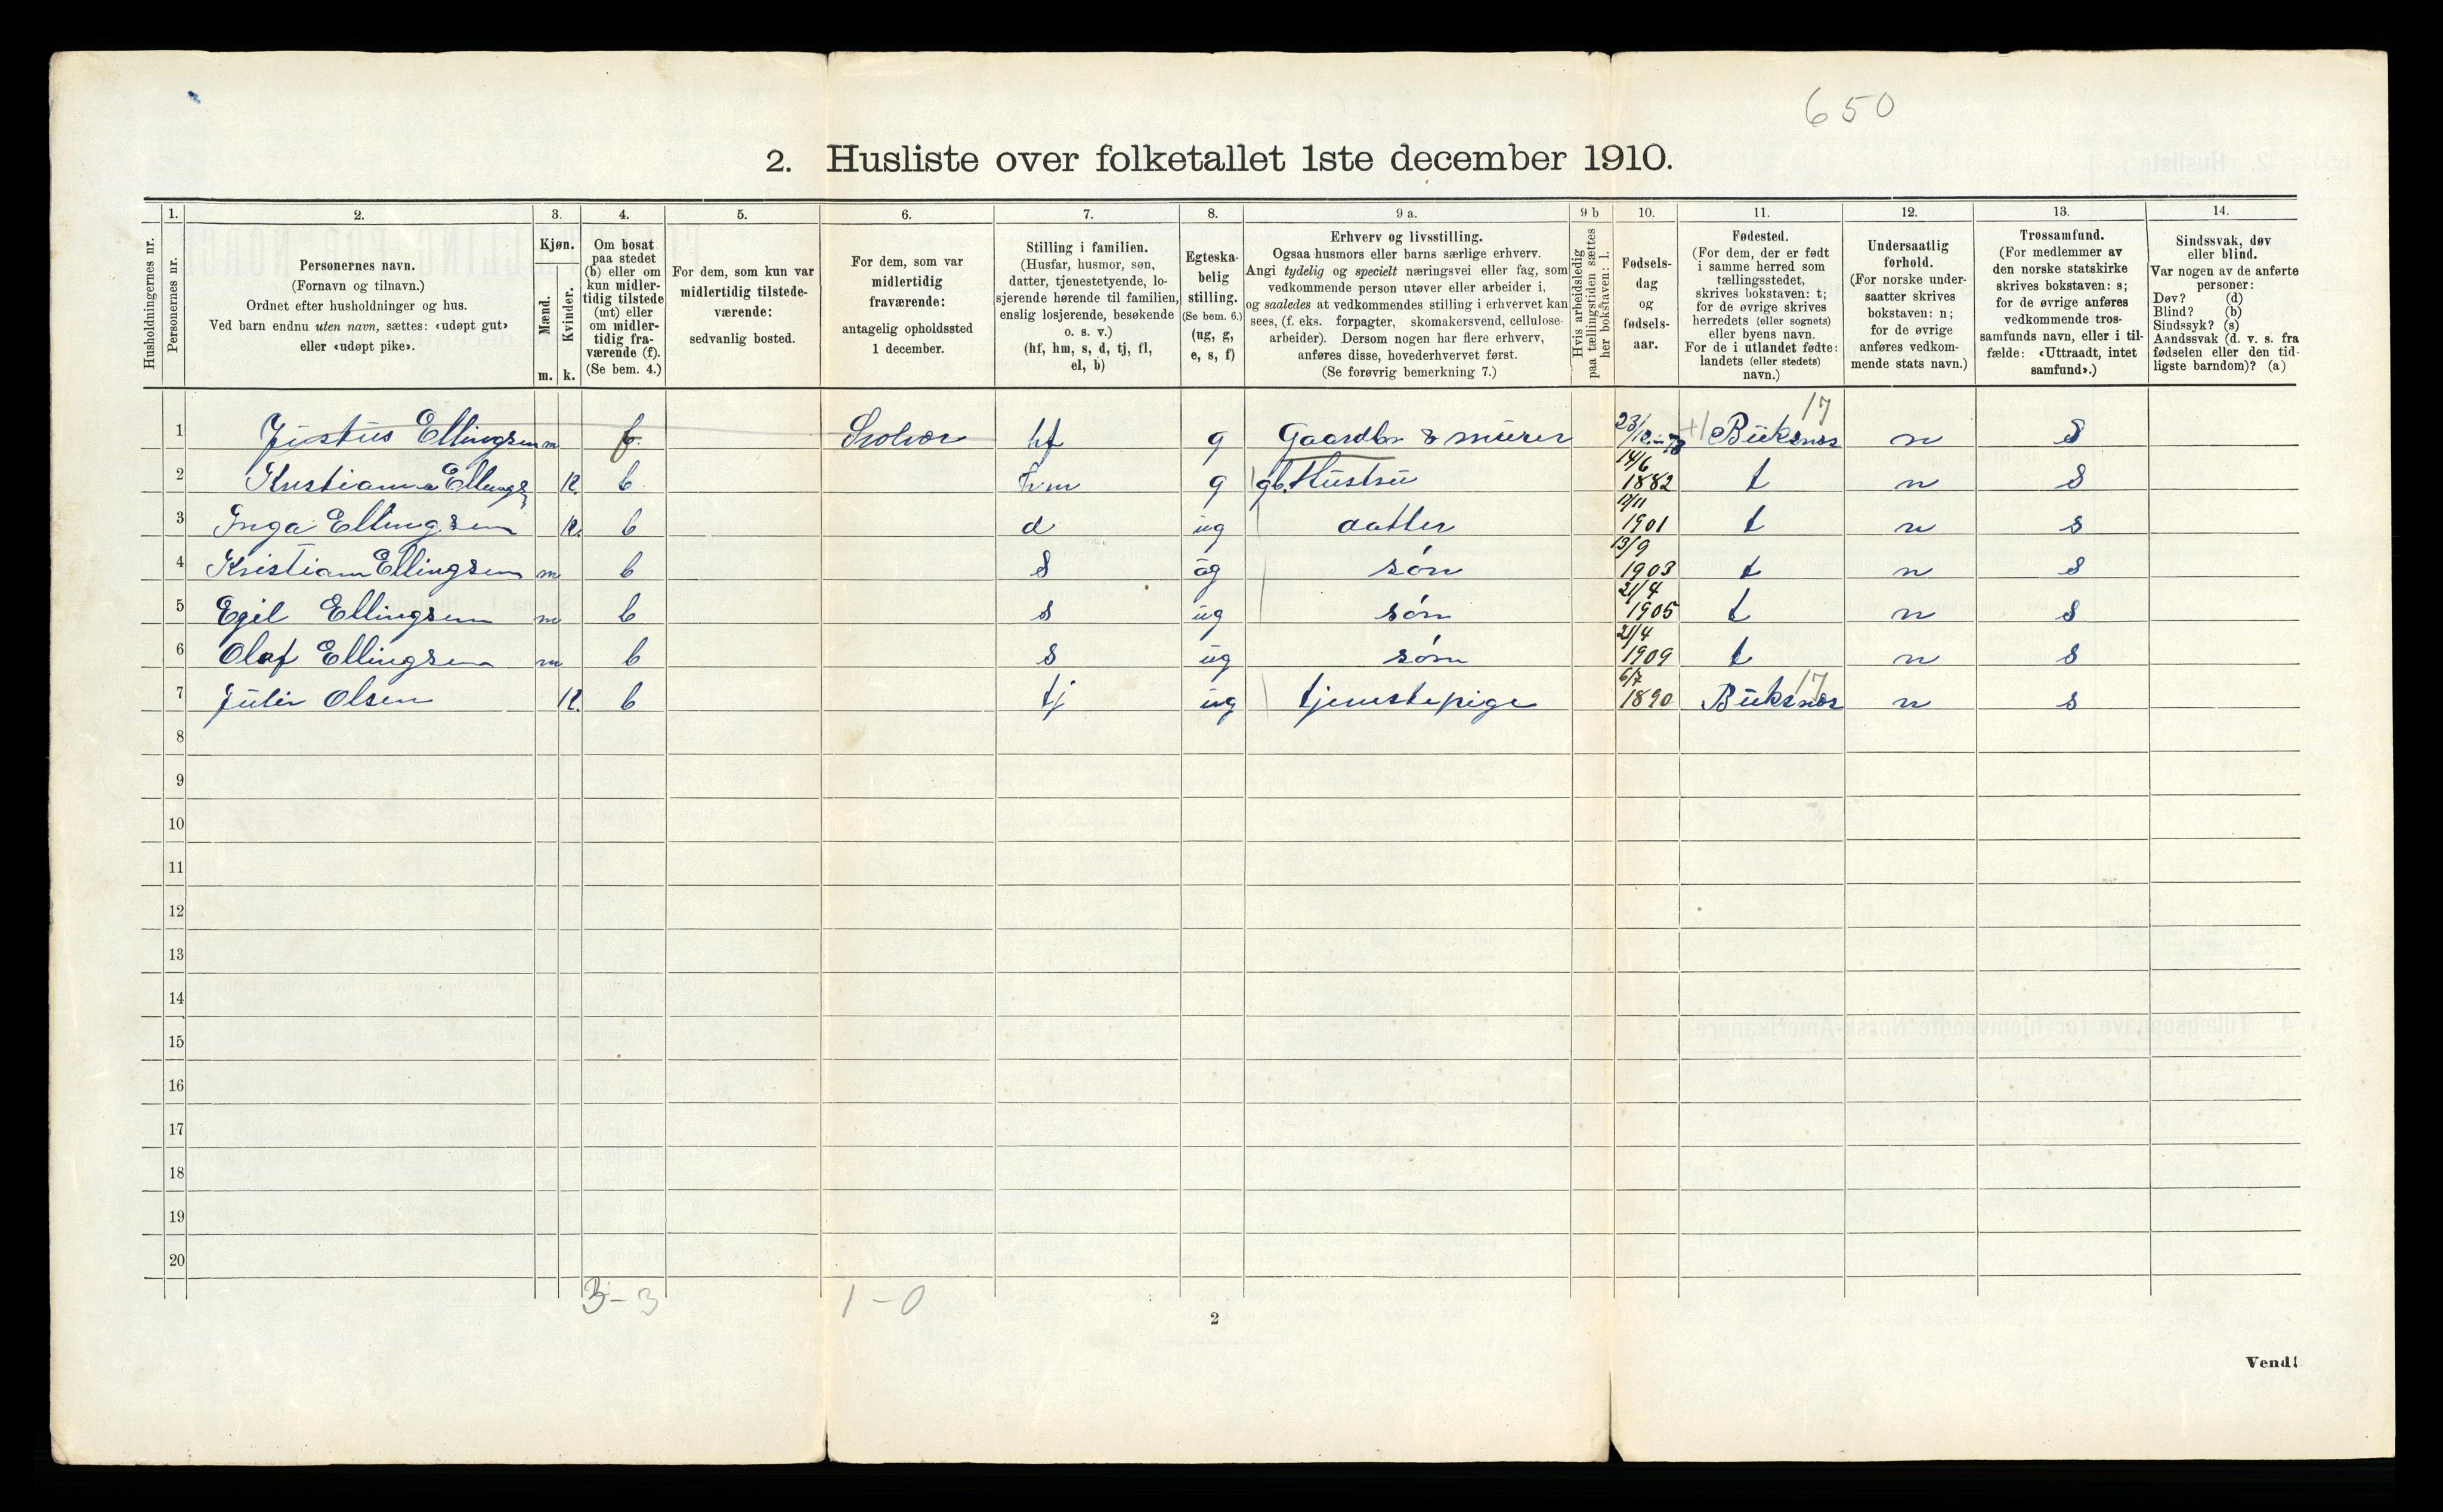 650
2. Husliste over folketallet 1ste december 1910.
Husholdningernes nr.
1. Personernes nr.
2. Personernes navn.
(Fornavn og tilnavn.)
Ordnet efter husholdninger og hus.
Ved barn endnu uten navn, sættes: «udøpt gut»
eller «udøpt pike».
3. Kjøn.
Mænd. Kvinder.
m. k.
4. Om bosat
paa stedet
(b) eller om
kun midler-
tidig tilstede
(mt) eller
om midler-
tidig fra-
værende (f).
(Se bem. 4.)
5. For dem, som kun var
midlertidig tilstede-
værende:
sedvanlig bosted.
6. For dem, som var
midlertidig
fraværende:
antagelig opholdssted
1 december.
7. Stilling i familien.
(Husfar, husmor, søn,
datter, tjenestetyende, lo-
sjerende hørende til familien,
enslig losjerende, besøkende
o. s. v.)
(hf, hm, s, d, tj, fl,
el, b)
8. Egteska-
belig
stilling.
(Se bem. 6.)
(ug, g,
e, s, f)
9 a. Erhverv og livsstilling.
Ogsaa husmors eller barns særlige erhverv.
Angi tydelig og specielt næringsvei eller fag, som
vedkommende person utøver eller arbeider i,
og saaledes at vedkommendes stilling i erhvervet kan
sees, (f. eks. forpagter, skomakersvend, cellulose-
arbeider). Dersom nogen har flere erhverv,
anføres disse, hovederhvervet først.
(Se forøvrig bemerkning 7.)
9 b Hvis arbeidsledig
paa tællingstiden sættes
her bokstaven: l.
10. Fødsels-
dag
og
fødsels-
aar.
11. Fødested.
(For dem, der er født
i samme herred som
tællingsstedet,
skrives bokstaven: t;
for de øvrige skrives
herredets (eller sognets)
eller byens navn.
For de i utlandet fødte:
landets (eller stedets)
navn.)
12. Undersaatlig
forhold.
(For norske under-
saatter skrives
bokstaven: n;
for de øvrige
anføres vedkom-
mende stats navn.)
13. Trossamfund.
(For medlemmer av
den norske statskirke
skrives bokstaven: s;
for de øvrige anføres
vedkommende tros-
samfunds navn, eller i til-
fælde: «Uttraadt, intet
samfund».)
14. Sindssvak, døv
eller blind.
Var nogen av de anførte
personer:
Døv? (d)
Blind? (b)
Sindssyk? (s)
Aandssvak (d. v. s. fra
fødselen eller den tid-
ligste barndom)? (a)
1 Justus Ellingsen m f. Svolvær hf g Gaardbr & murer 23/12 - 78 Buksnes 17 n S
2 Kristianna Ellings k. b hm g gb. Hustru 14/6 1882 t n S
3 Inga Ellingsen k. b d ug datter 17/11 1901 t n s
4 Kristian Ellingsen m b S ug søn 13/9 1903 t n S
5 Egil Ellingsen m b s ug søn 21/4 1905 t n s
6 Olaf Ellingsen m b s ug søn 21/4 1909 t n s
7 Julie Olsen k. b tj ug tjenestepige 6/7 1890 Buksnes 17 n s
8
9
10
11
12
13
14
15
16
17
18
19
20
3-3 1-0
2
Vend!